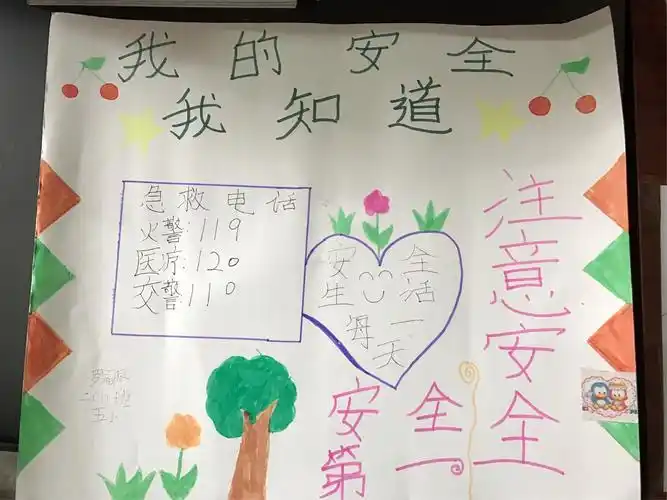 我的安全
我知道
急救电话
火警:119
医疗:120
交警110
安全
生活
每一
天
注意安全
安全
第一
二(1)班